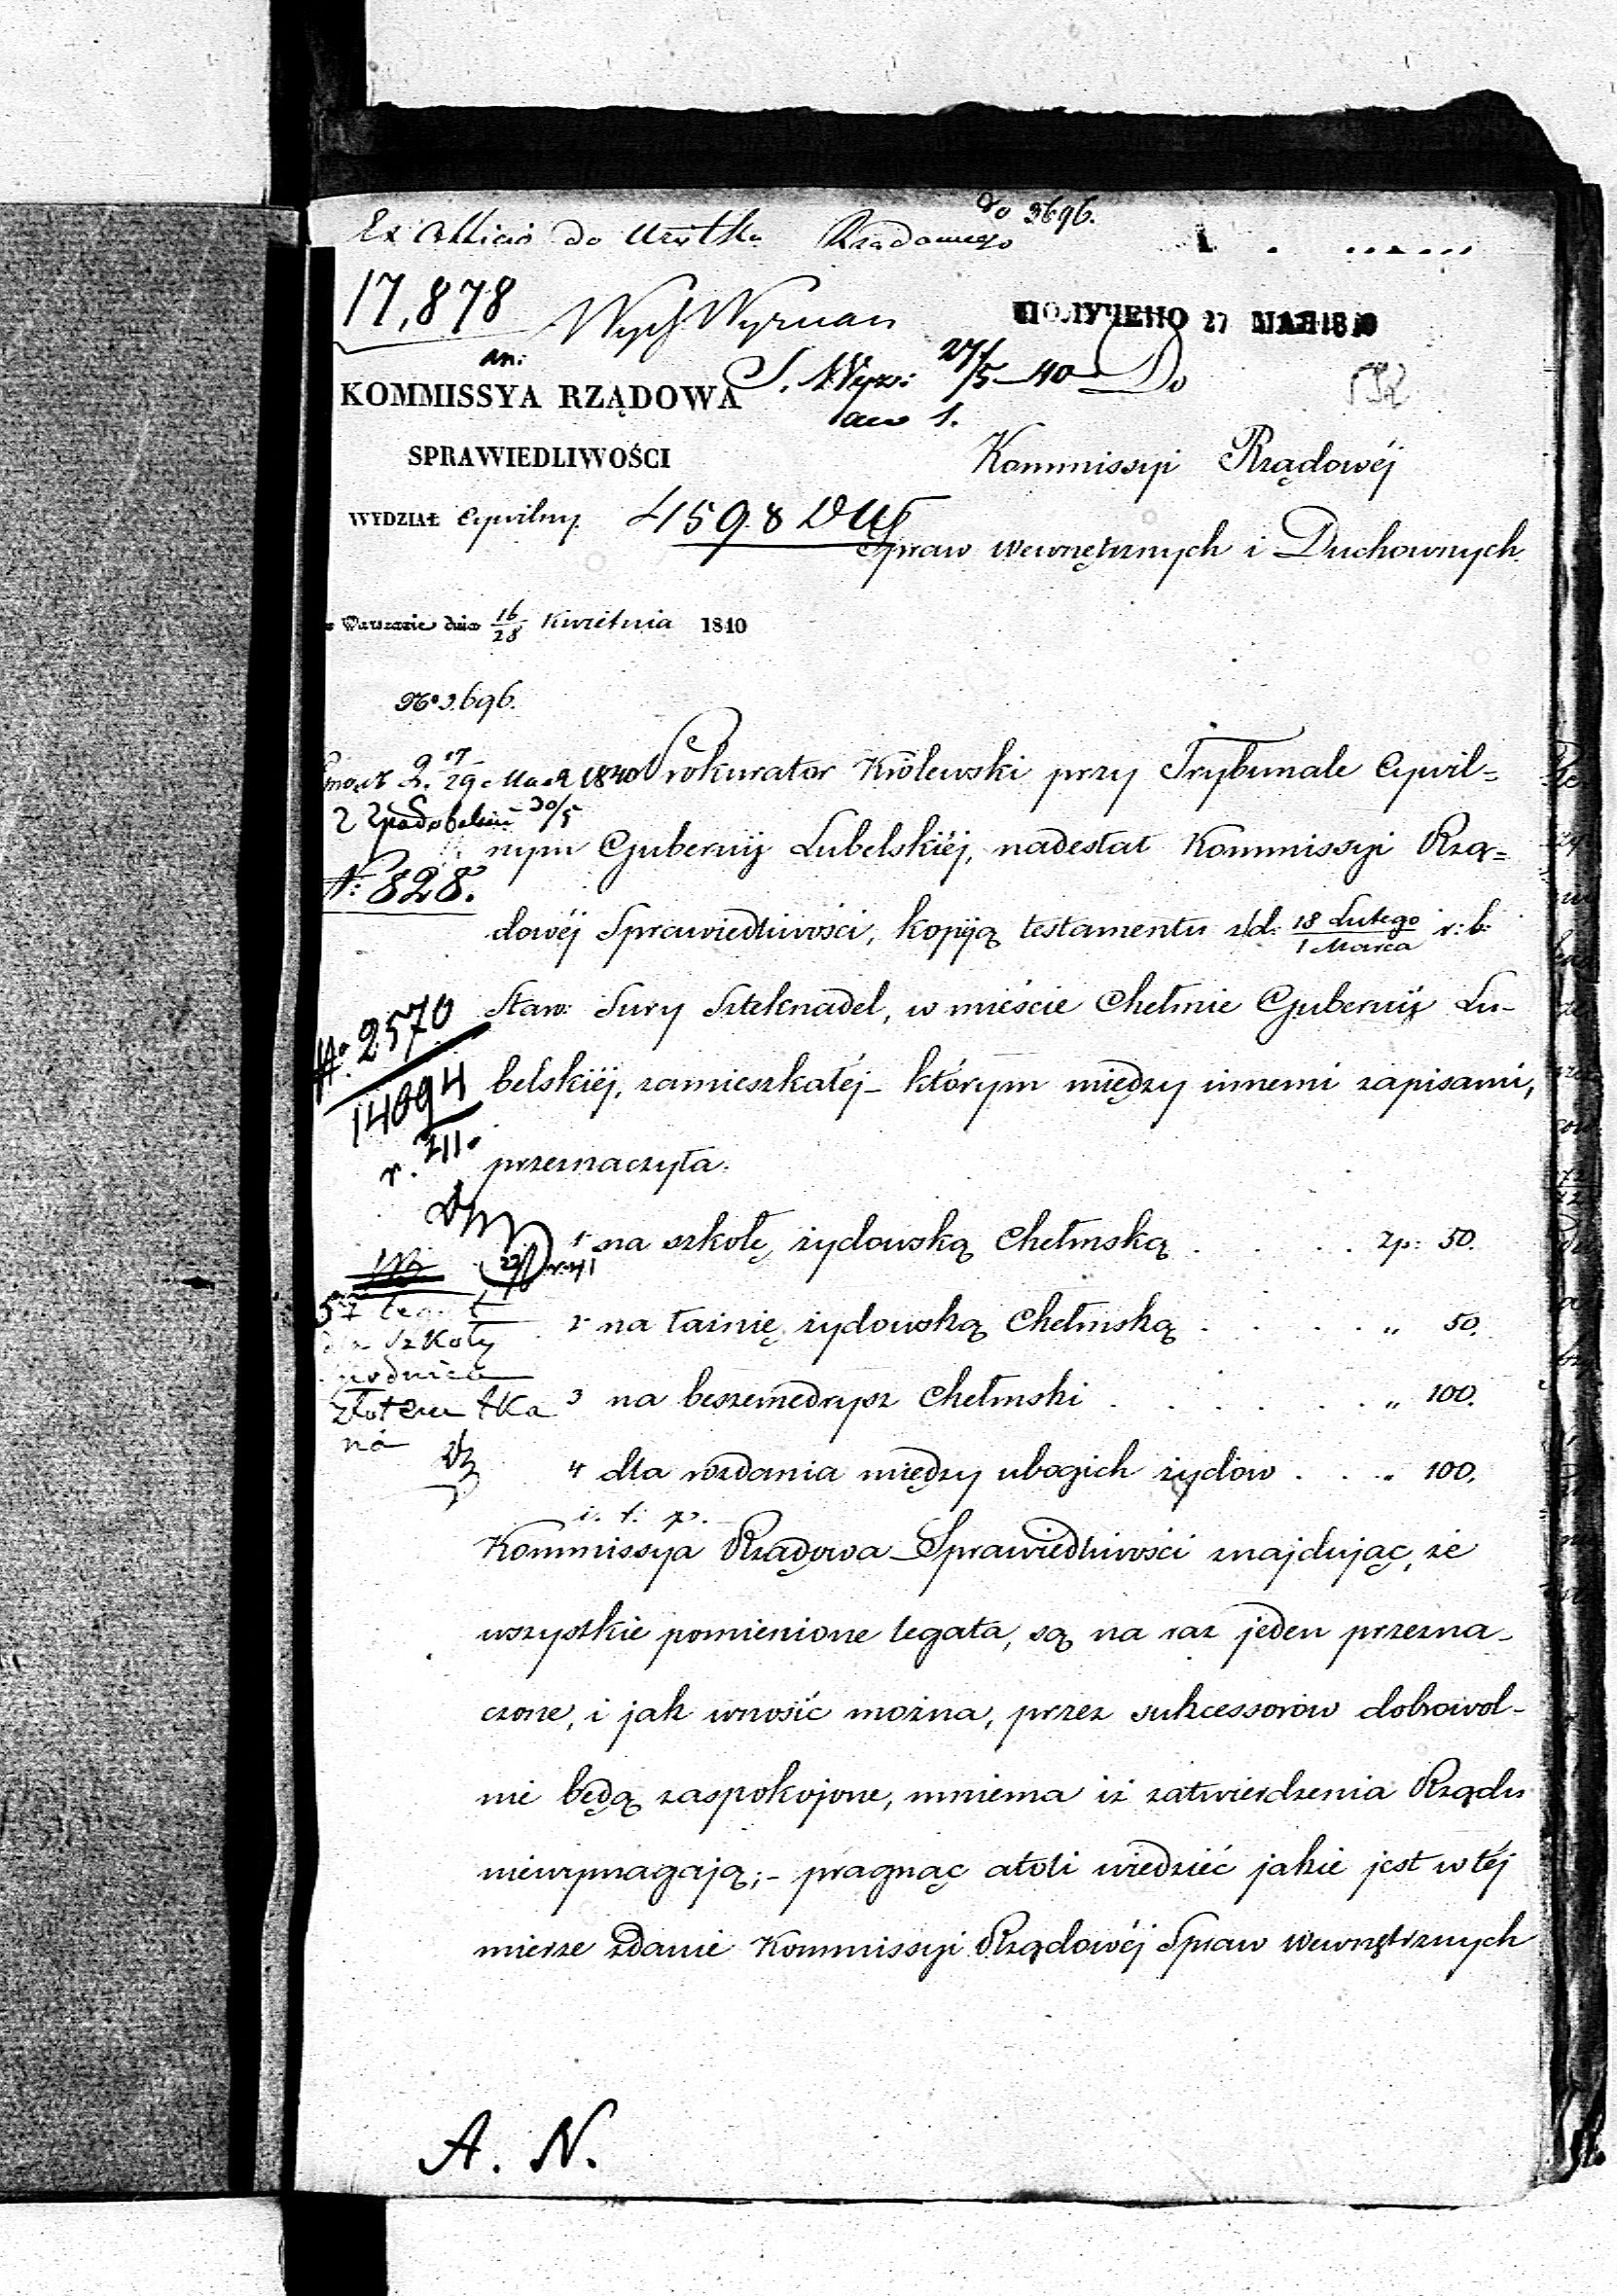 Ex Officio do Użytku Rządowego
do 3696.
17,878
Wych Wyznan
ПОЛУЧЕНО 27 МАЯ 1840
27/5 — 40
Do
KOMMISSYA RZĄDOWA
SPRAWIEDLIWOŚCI
Kommissyi Rządowéj
WYDZIAŁ Cywilny
4598
Spraw wewnętrznych i Duchownych
w Warszawie dnia 16/28 Kwietnia 1840
No 3.696.
17/29 Maja 1840
30/5
Prokurator Królewski przy Trybunale Cywil=
nym Gubernij Lubelskiéj, nadesłał Kommissyi Rzą=
N: 828.
dowéj Sprawiedliwości, kopiją testamentu z d: 18 Lutego / 1 Marca r: b:
Staw: Sury Szteknadel, w mieście Chełmie Gubernij Lu-
No. 2570
14094
belskiéj, zamieszkałéj – którym między innemi zapisami,
r. 711.
przeznaczyła:
1 na szkołę żydowską Chełmską . . . . . Zp: 50.
2 na łaźnię żydowską Chełmską . . . . . „ 50.
szkoły
3 na beszemedrysz Chełmski . . . . . . „ 100.
4 dla rozdania między ubogich żydów . . . „ 100.
i. t. p.
Kommissya Rządowa Sprawiedliwości znajdując, że
wszystkie pomienione legata, są na raz jeden przezna-
czone, i jak wnosić można, przez sukcessorów dobrowol-
nie będą zaspokojone, mniema iż zatwierdzenia Rządu
niewymagają; – pragnąc atoli wiedzieć jakie jest w téj
mierze zdanie Kommissyi Rządowéj Spraw Wewnętrznych
A. N.